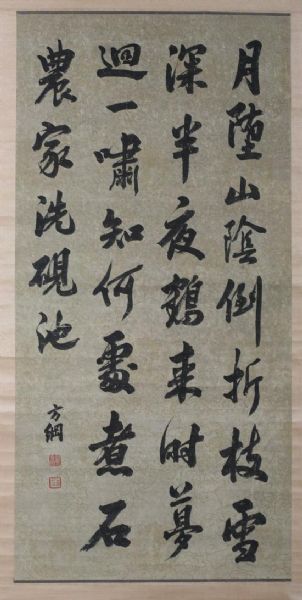 月墮山陰倒折枝雪
深半夜鶴来時夢
迴一嘯知何處煮石
農家洗硯池
方綱